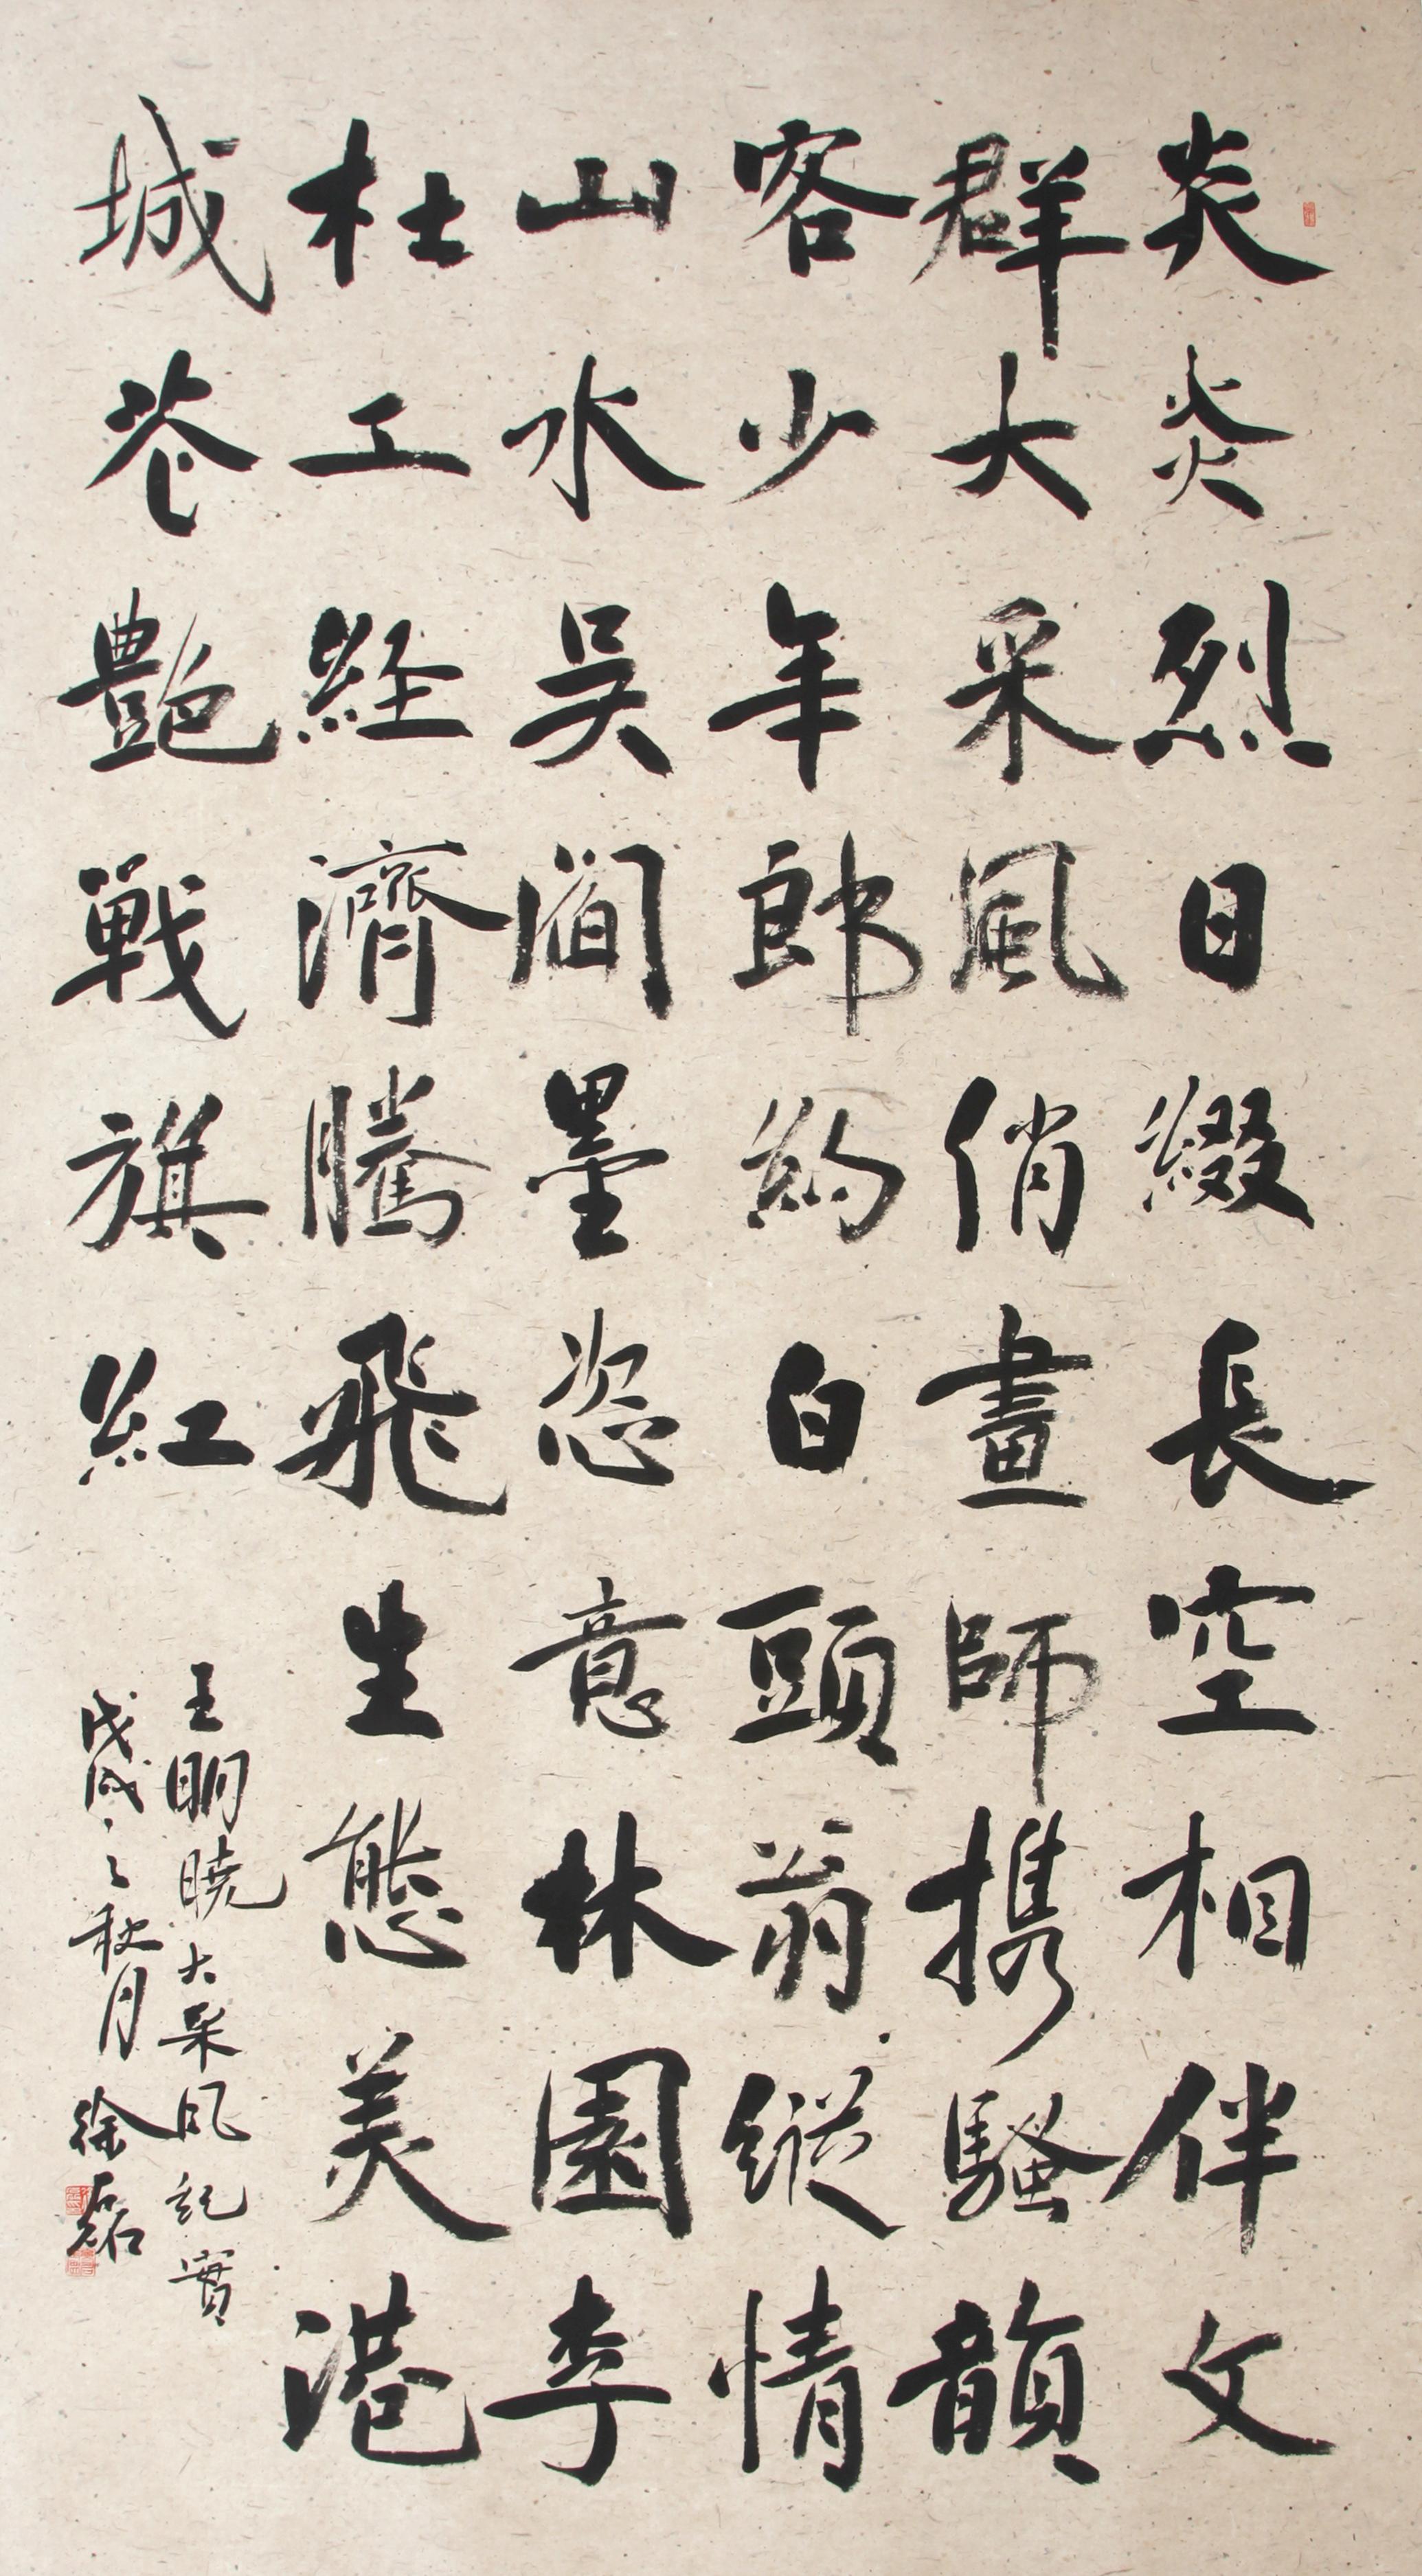 炎炎烈日綴長空相伴文
群大采風俏畫師携騷韻
客少年郎約白頭翁縱情
山水吴間墨恣意林園李
杜工経濟騰飛生態美港
城花艷戰旗紅
王明曉大采風記實
戊戌之秋月徐磊